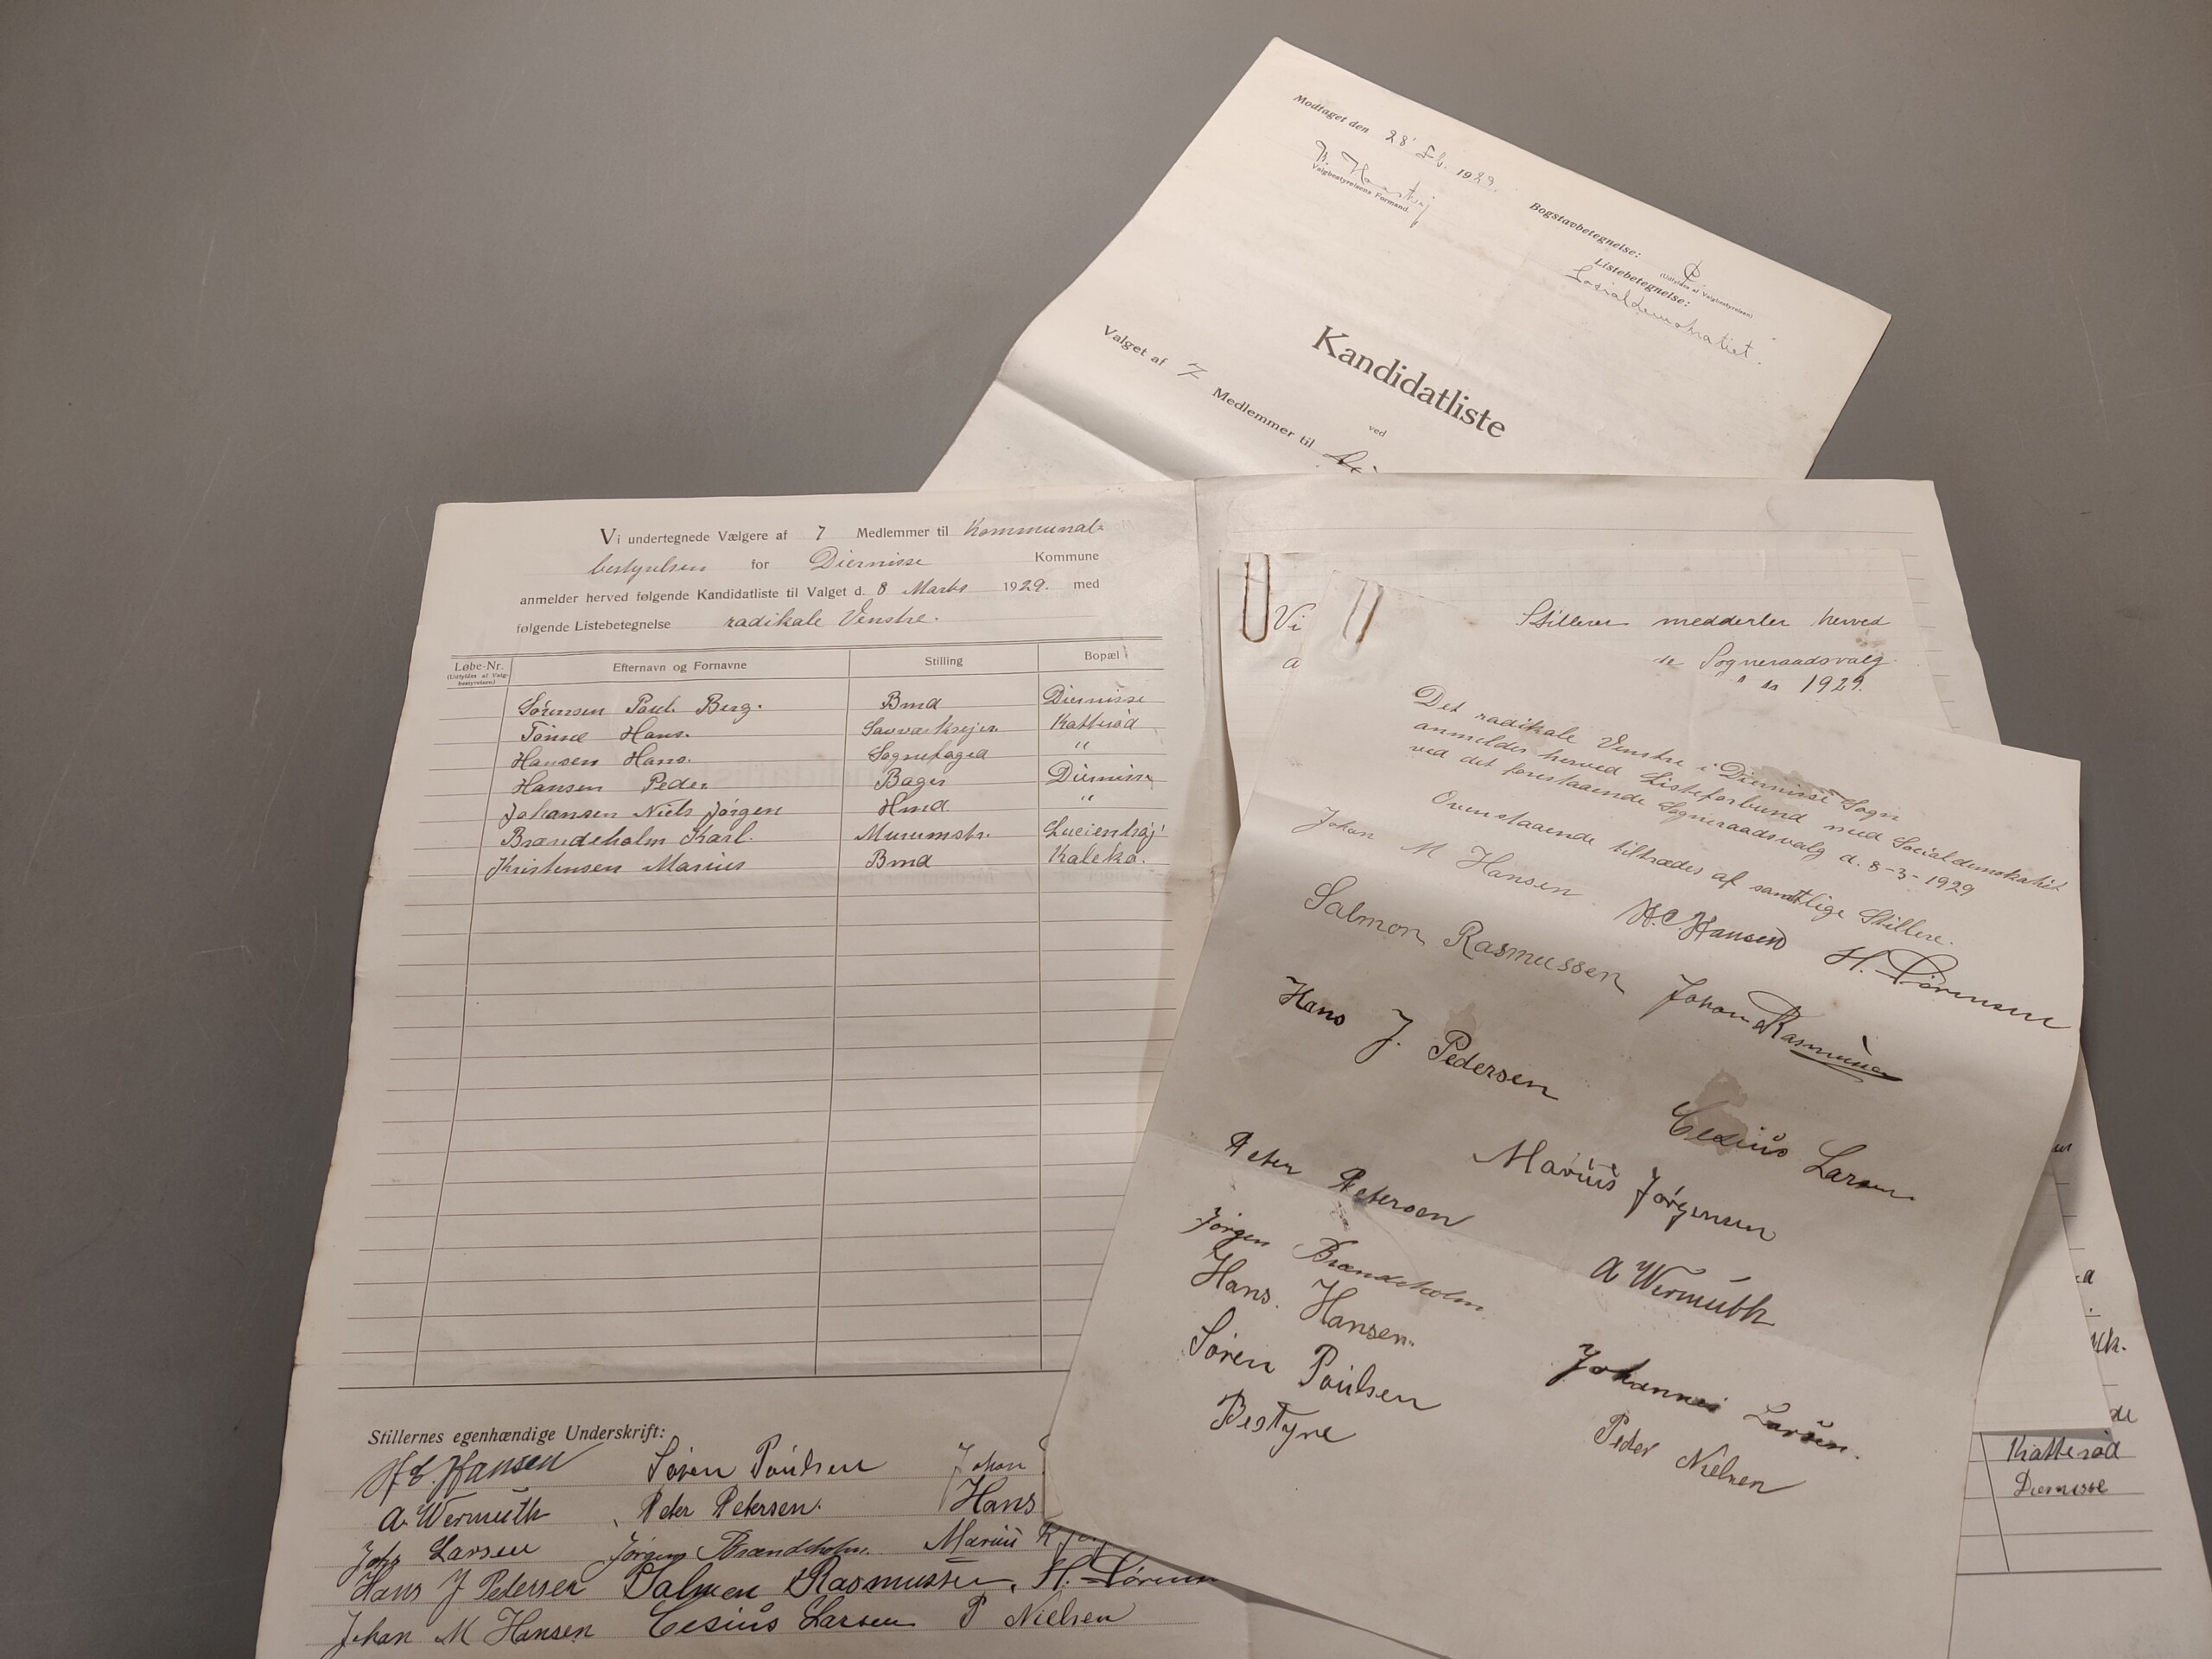 Modtaget den 28' Fb. 1929.
Valgbestyrelsens Formand.
Bogstavbetegnelse: C
(Udfyldes af Valgbestyrelsen)
Listebetegnelse:
Socialdemokratiet.
Kandidatliste
ved
Valget af 7 Medlemmer til
Vi undertegnede Vælgere af 7 Medlemmer til Kommunal=
bestyrelsen for Diernisse Kommune
anmelder herved følgende Kandidatliste til Valget d. 8 Marts 1929. med
følgende Listebetegnelse radikale Venstre.
Løbe-Nr. Efternavn og Fornavne Stilling Bopæl
(Udfyldes af Valg-
bestyrelsen)
Sørensen Poul Berg. Bmd Diernisse
Tønne Hans. Savværksejer Katterød
Hansen Hans. Sognefoged "
Hansen Peder Bager Diernisse
Johansen Niels Jørgen Hmd. "
Brændeholm Karl. Murermstr. Lucienhøj
Kristensen Marius Bmd Kaleko.
Stillernes egenhændige Underskrift:
H.C. Hansen Søren Poulsen Johan
A. Wermuth Peter Petersen. Hans
Johs Larsen Jørgen Brændeholm. Marius K Jør
Hans J Pedersen Salmon Rasmussen. H. Sørensen
Johan M Hansen Cesius Larsen P Nielsen
Vi
a
Stillerer meddeler herved
de Sogneraadsvalg
1929.
Det radikale Venstre i Diernisse Sogn
anmelder herved Listeforbund med Socialdemokratiet
ved det forestaaende Sogneraadsvalg d. 8-3-1929
Ovenstaaende tiltrædes af samtlige Stillere.
Johan M Hansen. H.C. Hansen H. Sørensen
Salmon Rasmussen Johan Rasmussen
Hans J. Pedersen
Cesius Larsen
Marius Jørgensen
Peter Petersen
A Wermuth
Jørgen Brændeholm
Hans. Hansen.
Johannes Larsen.
Søren Poulsen
Peder Nielsen
Bestyre
Katterød
Diernisse